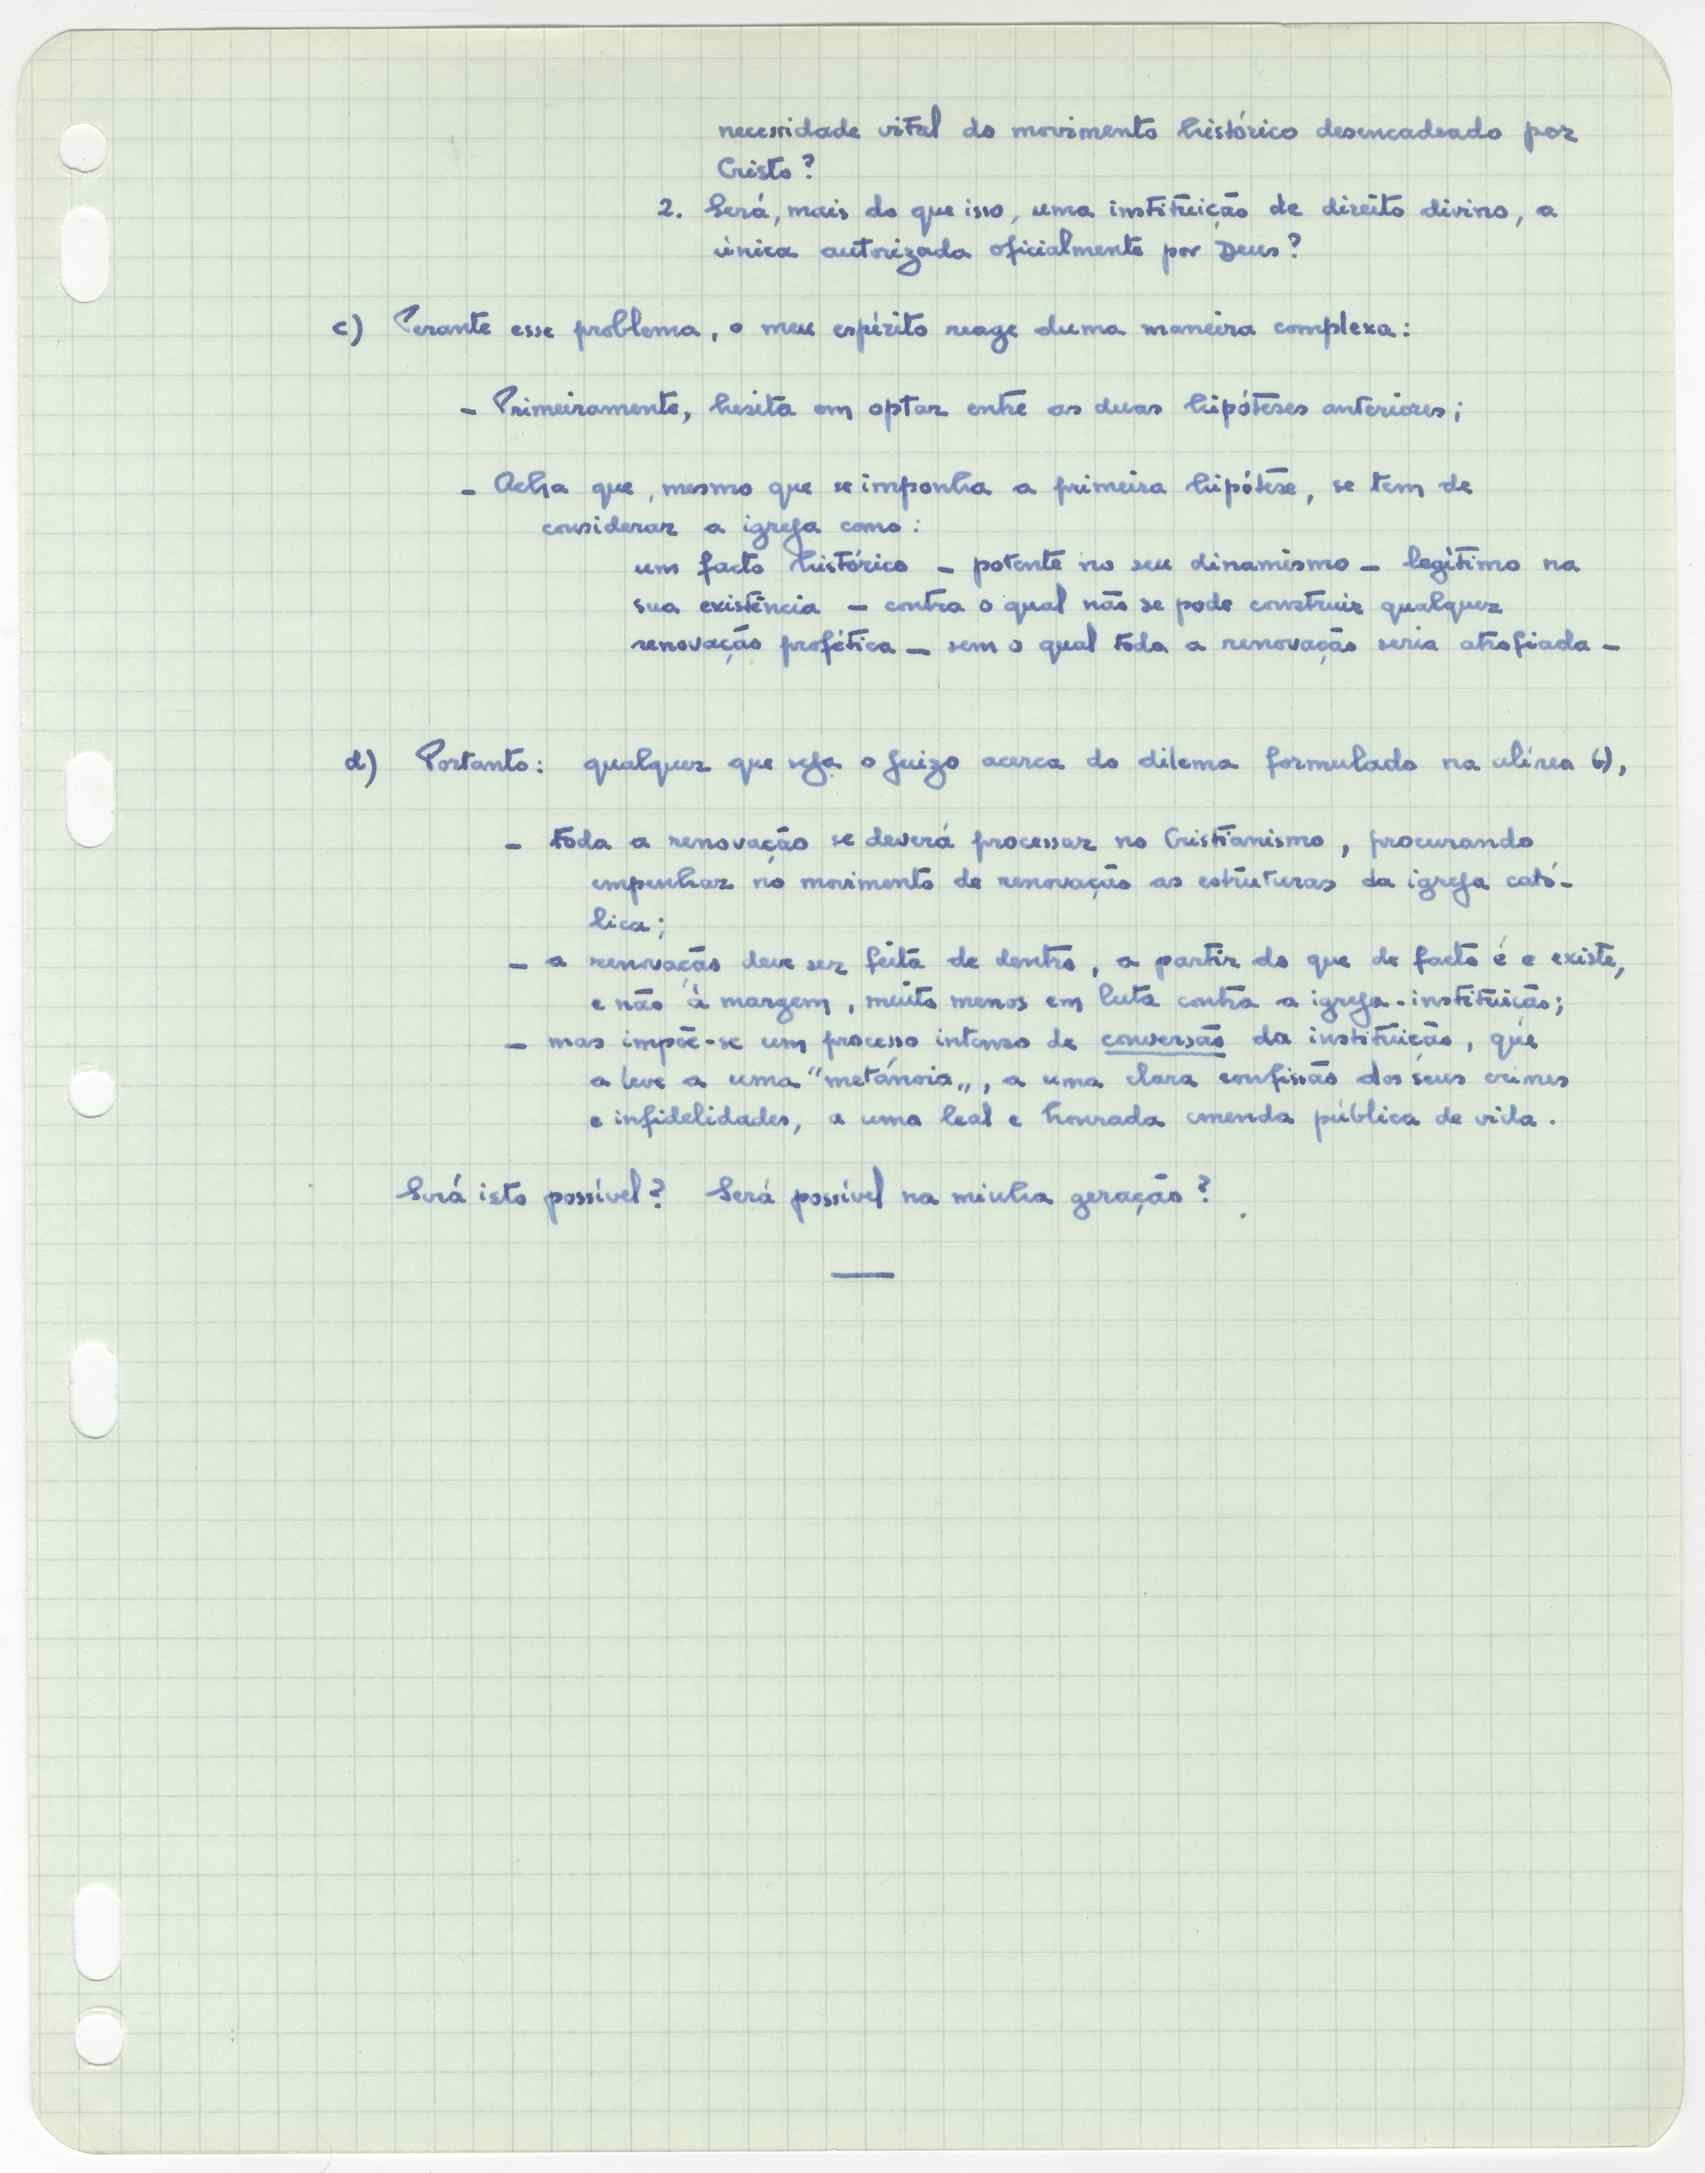 necessidade vital do movimento histórico desencadeado por
Cristo?
2. Será, mais do que isso, uma instituição de direito divino, a
única autorizada oficialmente por Deus?
c) Perante esse problema, o meu espírito reage duma maneira complexa:
- Primeiramente, hesita em optar entre as duas hipóteses anteriores;
- Acha que, mesmo que se imponha a primeira hipótese, se tem de
considerar a igreja como:
um facto histórico - potente no seu dinamismo - legítimo na
sua existência - contra o qual não se pode construir qualquer
renovação profética - sem o qual toda a renovação seria atrofiada -
d) Portanto: qualquer que seja o juizo acerca do dilema formulado na alínea b),
- toda a renovação se deverá processar no Cristianismo, procurando
empenhar no movimento de renovação as estruturas da igreja cató-
lica;
- a renovação deve ser feita de dentro, a partir do que de facto é e existe,
e não à margem, muito menos em luta contra a igreja-instituição;
- mas impõe-se um processo intenso de conversão da instituição, que
a leve a uma "metánoia", a uma clara confissão dos seus crimes
e infidelidades, a uma leal e honrada emenda pública de vida.
Será isto possível? Será possível na minha geração?